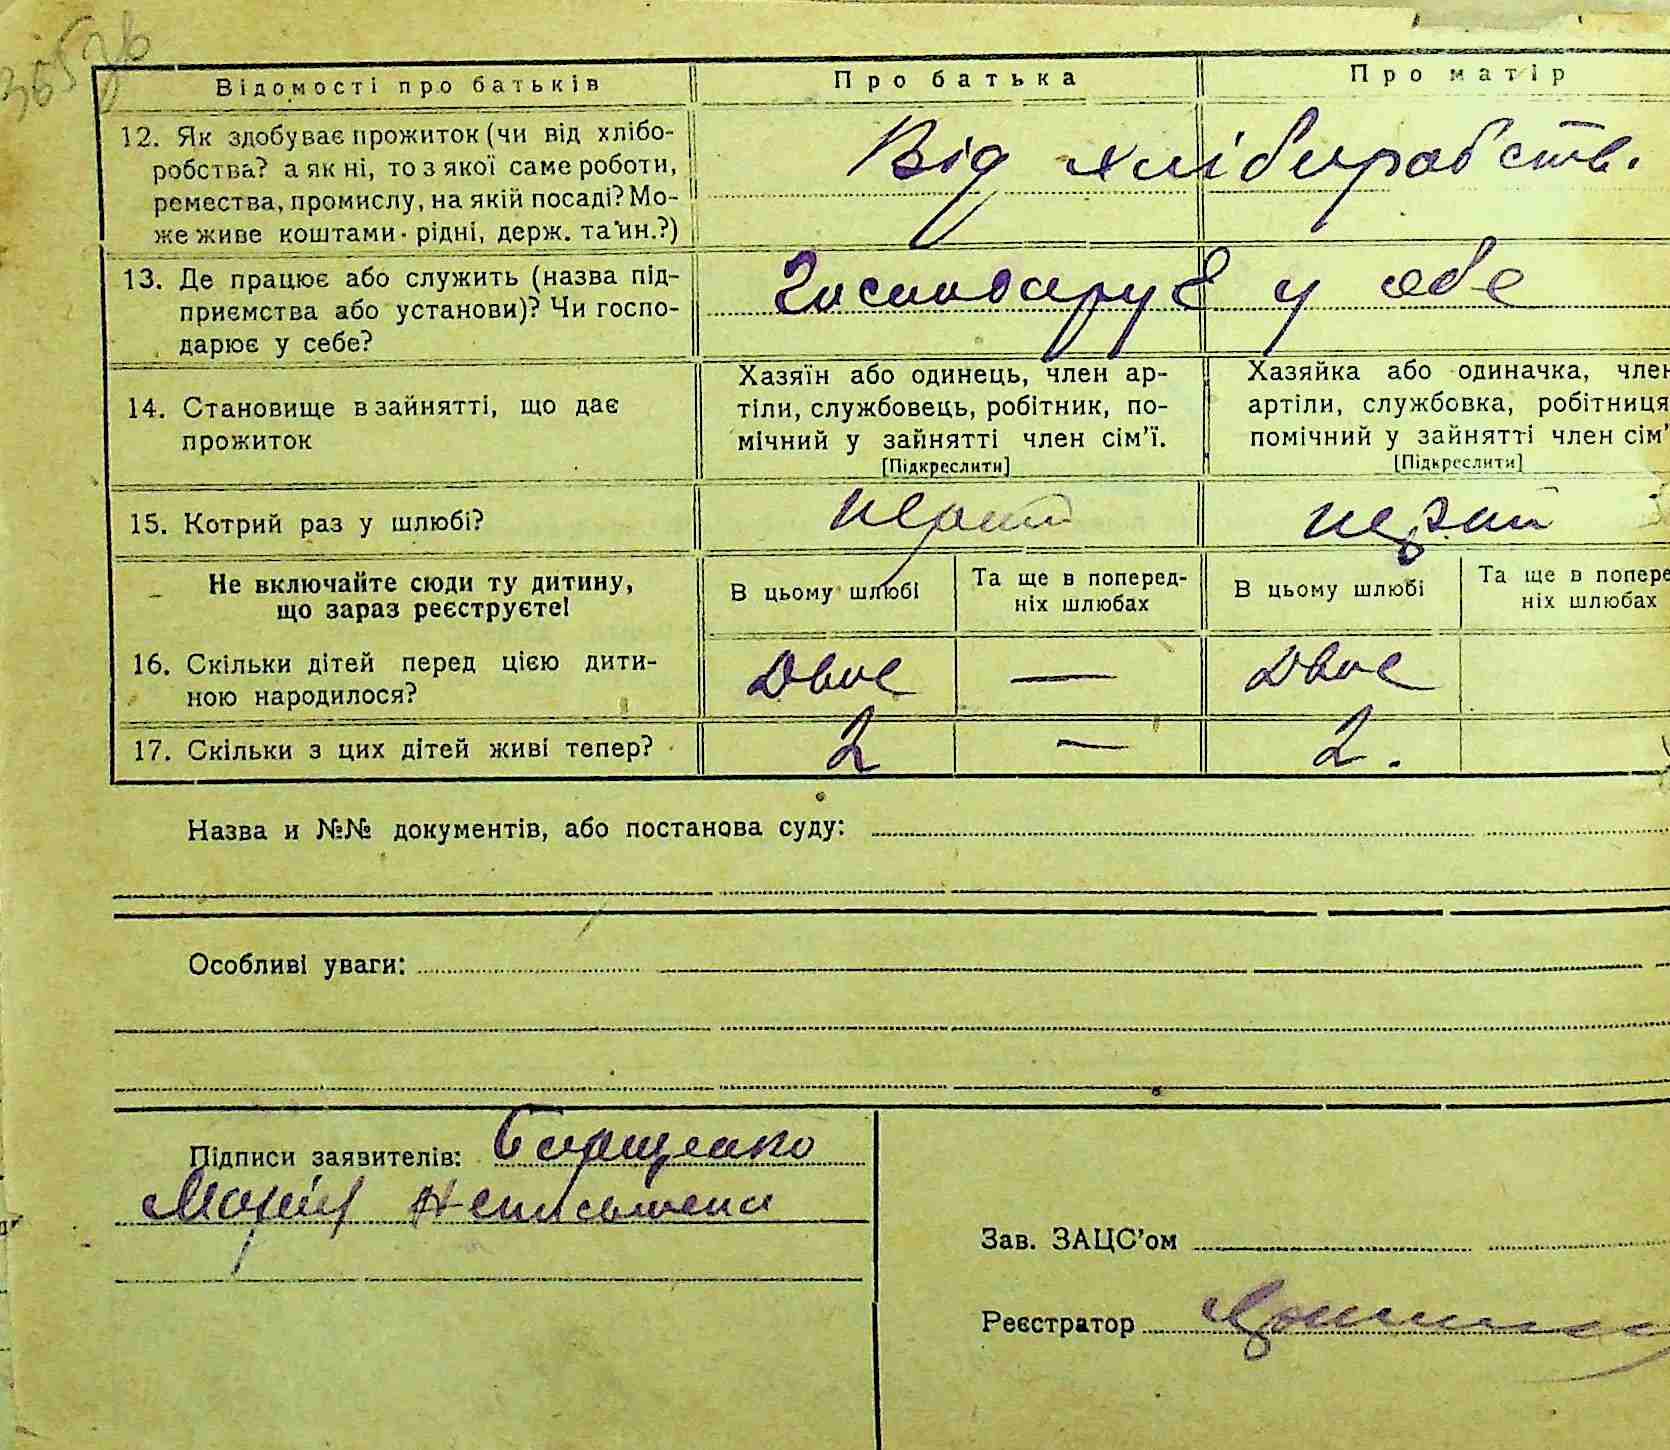 Відомості про батьків
Про батька
Про матір
12. Як здобуває прожиток (чи від хлібо-
робства? а як ні, то з якої саме роботи,
ремества, промислу, на якій посаді? Мо-
же живе коштами рідні, держ. та ин.?)
Від хліборобств.
13. Де працює або служить (назва під-
приємства або установи)? Чи госпо-
дарює у себе?
Господарує у себе
14. Становище в зайнятті, що дає
прожиток
Хазяїн або одинець, член ар-
тіли, службовець, робітник, по-
мічний у зайнятті член сім'ї.
[Підкреслити]
Хазяйка або одиначка, член
артіли, службовка, робітниця
помічний у зайнятті член сім'
[Підкреслити]
15. Котрий раз у шлюбі?
перший
перший
Не включайте сюди ту дитину,
що зараз реєструєте!
В цьому шлюбі
Та ще в поперед-
ніх шлюбах
В цьому шлюбі
Та ще в попере
ніх шлюбах
16. Скільки дітей перед цією дити-
ною народилося?
Двоє
—
Двоє
17. Скільки з цих дітей живі тепер?
2
—
2.
Назва и №№ документів, або постанова суду:
Особливі уваги:
Підписи заявителів:
Марія Неписьмена
Зав. ЗАЦС'ом
Реєстратор